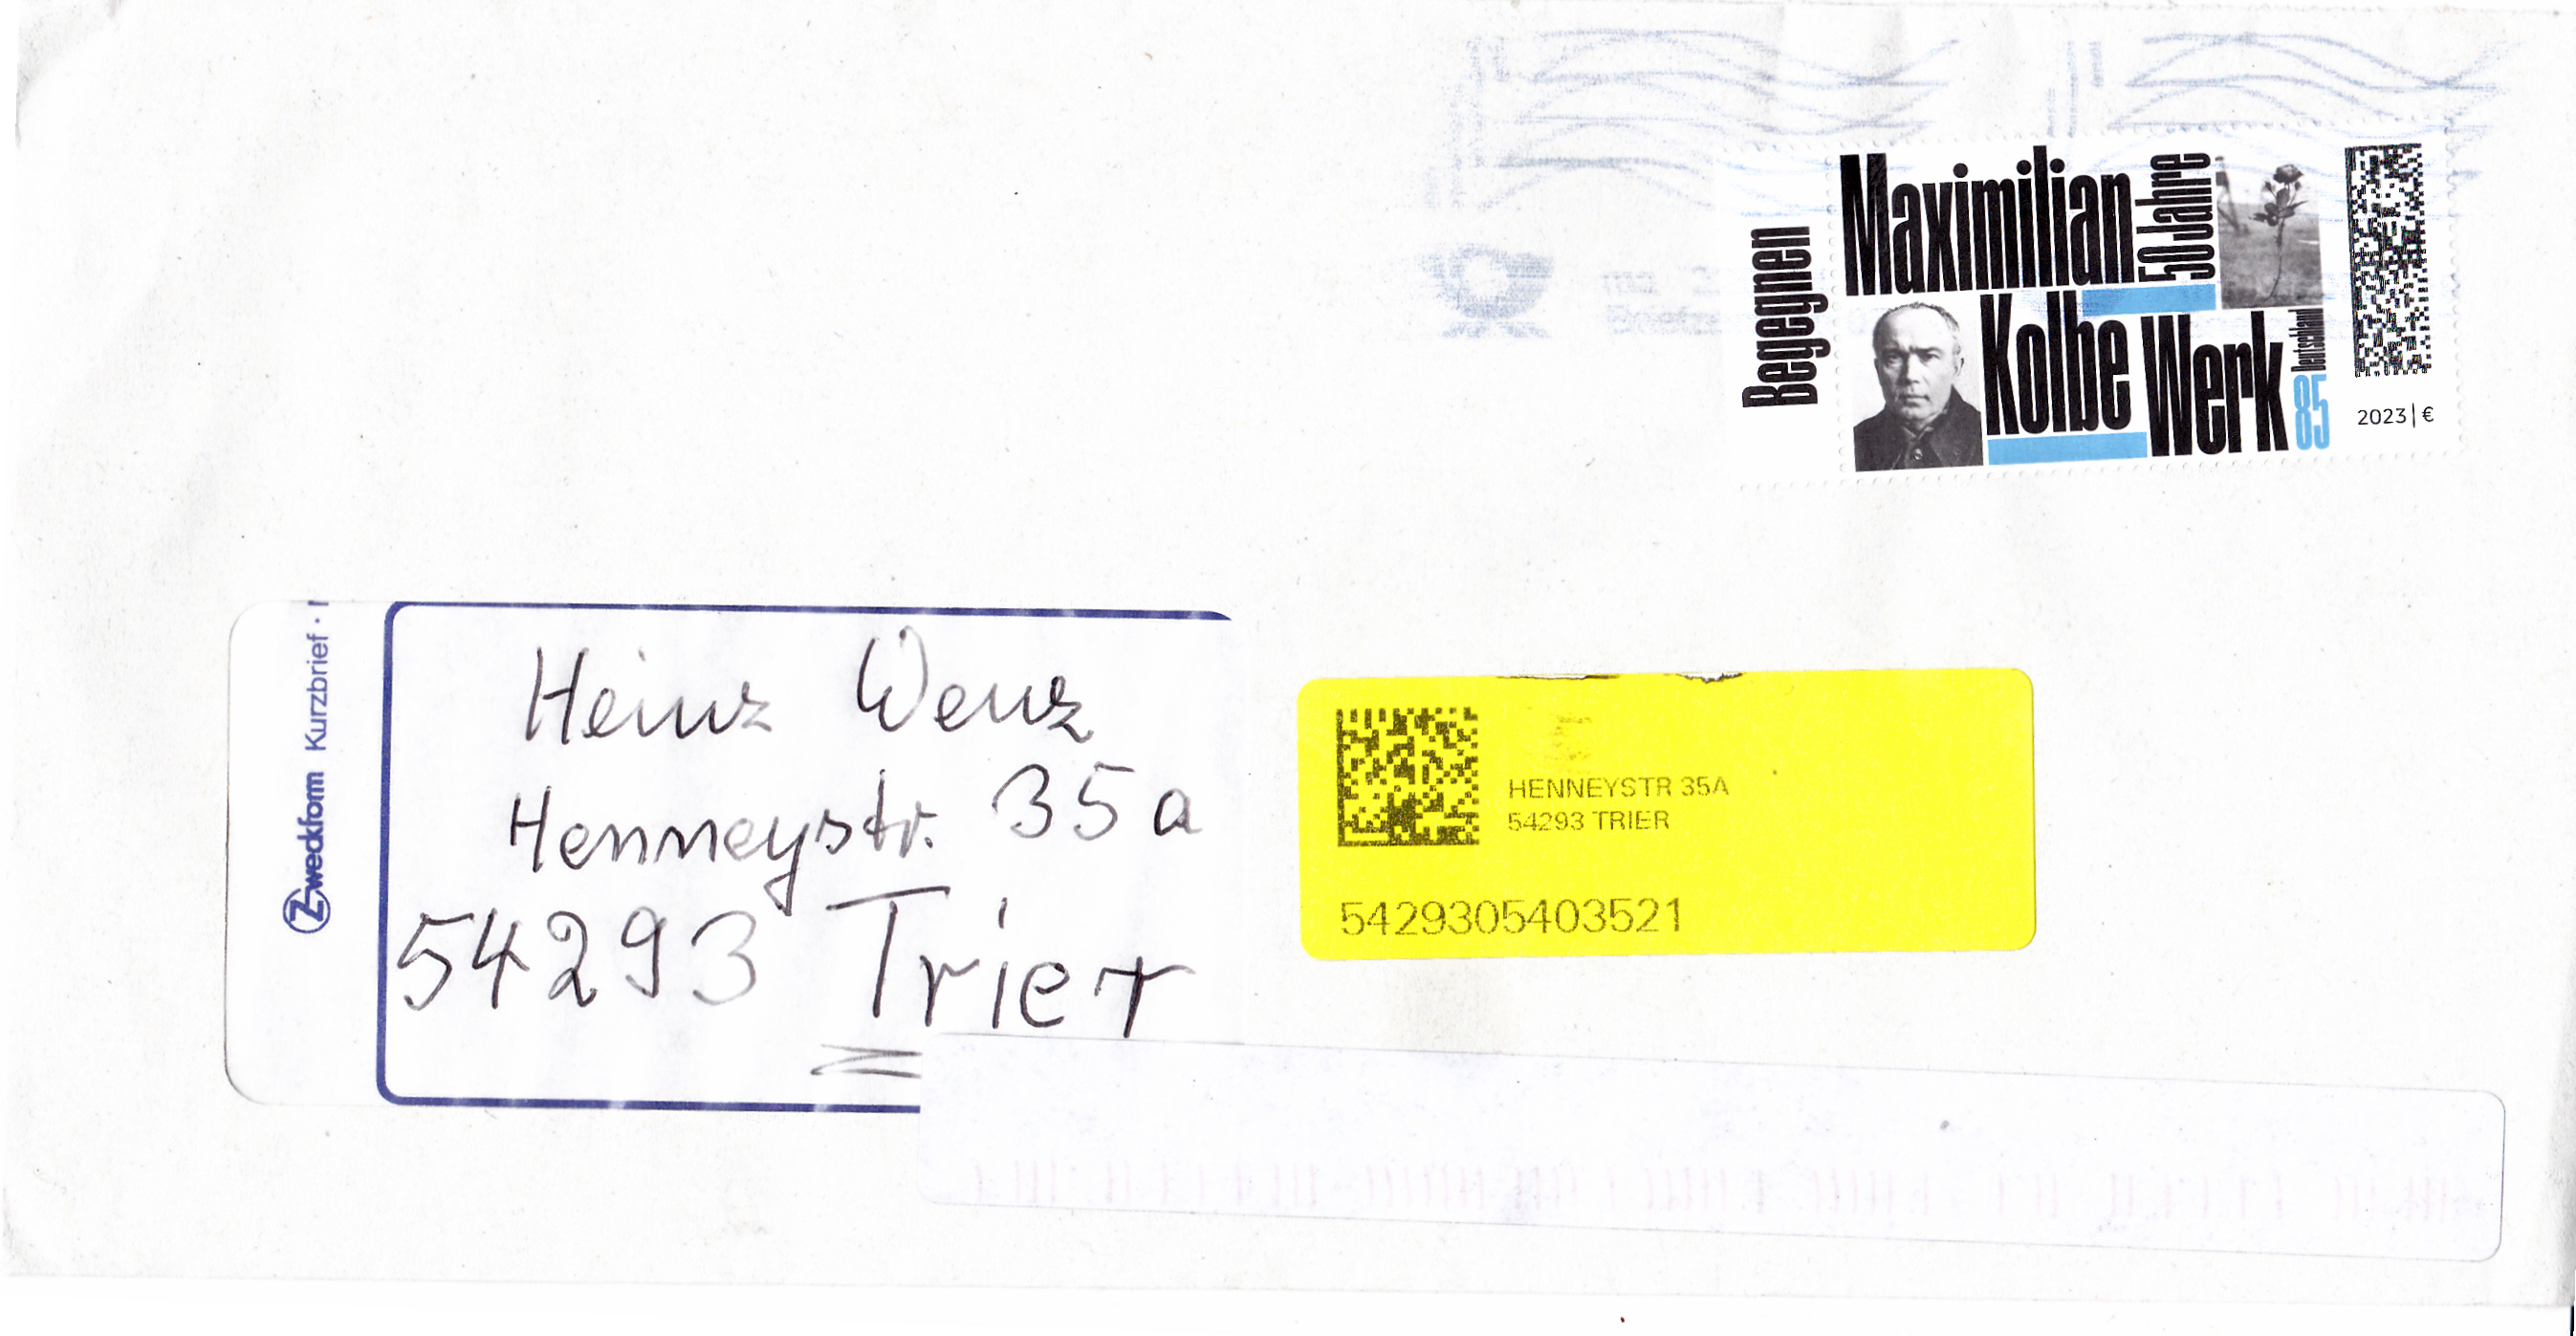 Begegnen
Maximilian
50 Jahre
Kolbe Werk
Deutschland
85
2023 | €
Zweckform Kurzbrief ·
Heinz Wenz
Henneystr. 35a
54293 Trier
HENNEYSTR 35A
54293 TRIER
5429305403521